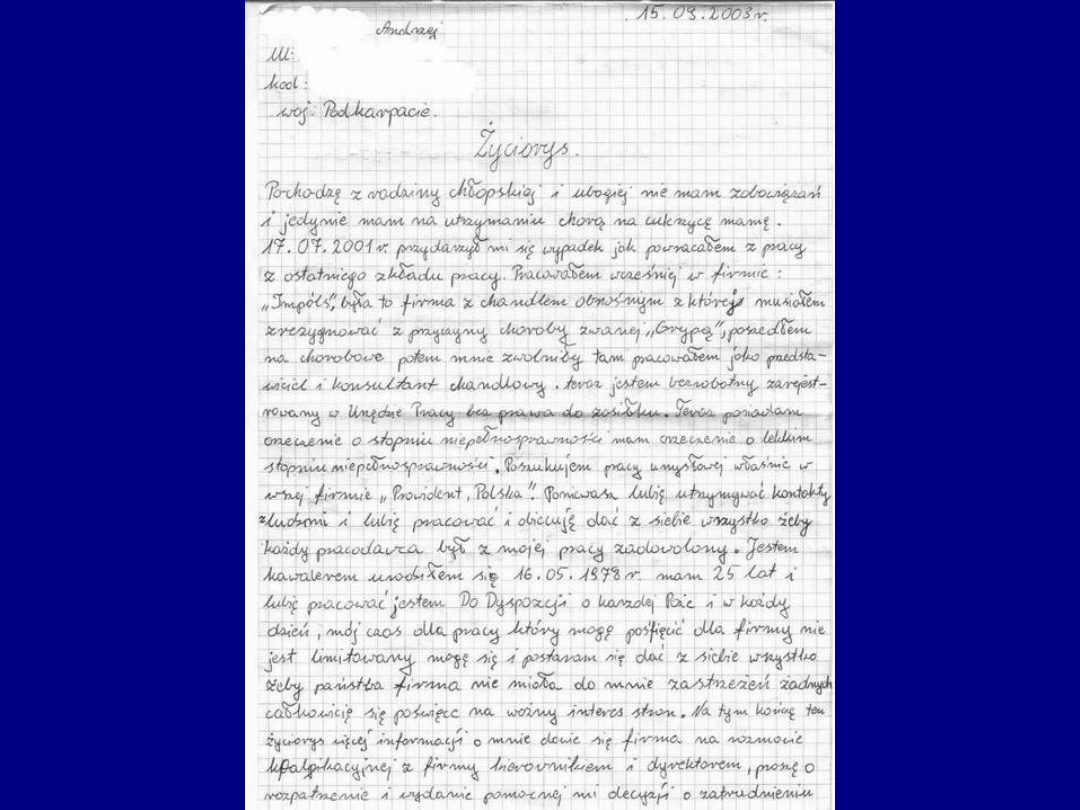 15.09.2003r.
Andrzej
Ul:
kod:
woj: Podkarpacie.
Życiorys.
Pochodzę z rodziny chłopskiej i ubogiej nie mam zobowiązań
i jedynie mam na utrzymaniu chorą na cukrzycę mamę.
17.07.2001r. przydarzył mi się wypadek jak powracałem z pracy
z ostatniego zkładu pracy. Pracowałem wcześniej w firmie:
„Impóls", była to firma z chandlem obnośnym z której musiałem
zrezygnować z przyczyny choroby zwanej „Grypą", poszedłem
na chorobowe potem mnie zwolniły tam pracowałem jako przedsta-
wiciel i konsultant chandlowy. teraz jestem bezrobotny zarejest-
rowany w Urzędzie Pracy bez prawa do zasiłku. Teraz posiadam
orzeczenie o stopniu niepełnosprawności mam orzeczenie o lekkim
stopniu niepełnosprawności. Poszukujem pracy umysłowej właśnie w
wszej firmie „Provident, Polska". Poniewasz lubię utrzymywać kontakty
z ludzmi i lubię pracować i obiecuję dać z siebie wszystko żeby
każdy pracodawca był z mojej pracy zadowolony. Jestem
kawalerem urodziłem się 16.05.1978r. mam 25 lat i
lubię pracować jestem Do Dyspozcji o karzdej Poże i w każdy
dzień, mój czas dla pracy który mogę pośfięcić dla firmy nie
jest limitowany mogę się i postaram się dać z siebie wszystko
żeby państba firma nie miała do mnie zastrzeżeń żadnych
całkowicię się poświęce na ważny interes stron. Na tym kończę ten
życiorys więcej informacji o mnie dowie się firma na rozmowie
kfalfikacyjnej z firmy kierownikiem i dyrektorem, proszę o
rozpatrzenie i wydanie pomocnej mi decyzji o zatrudnieniu